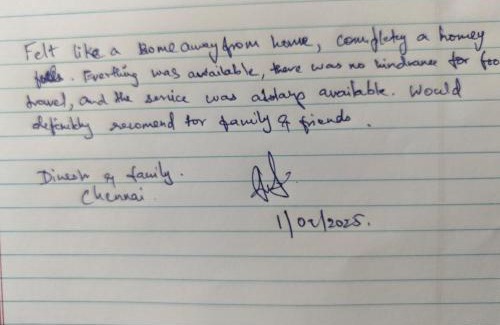 Felt like a home away from home, completly a homey
feels. Everthing was available, there was no hindrance for foo
travel, and the service was always available. Would
definitely recomend for family & friends.
Dinesh & family.
Chennai.
1/02/2025.